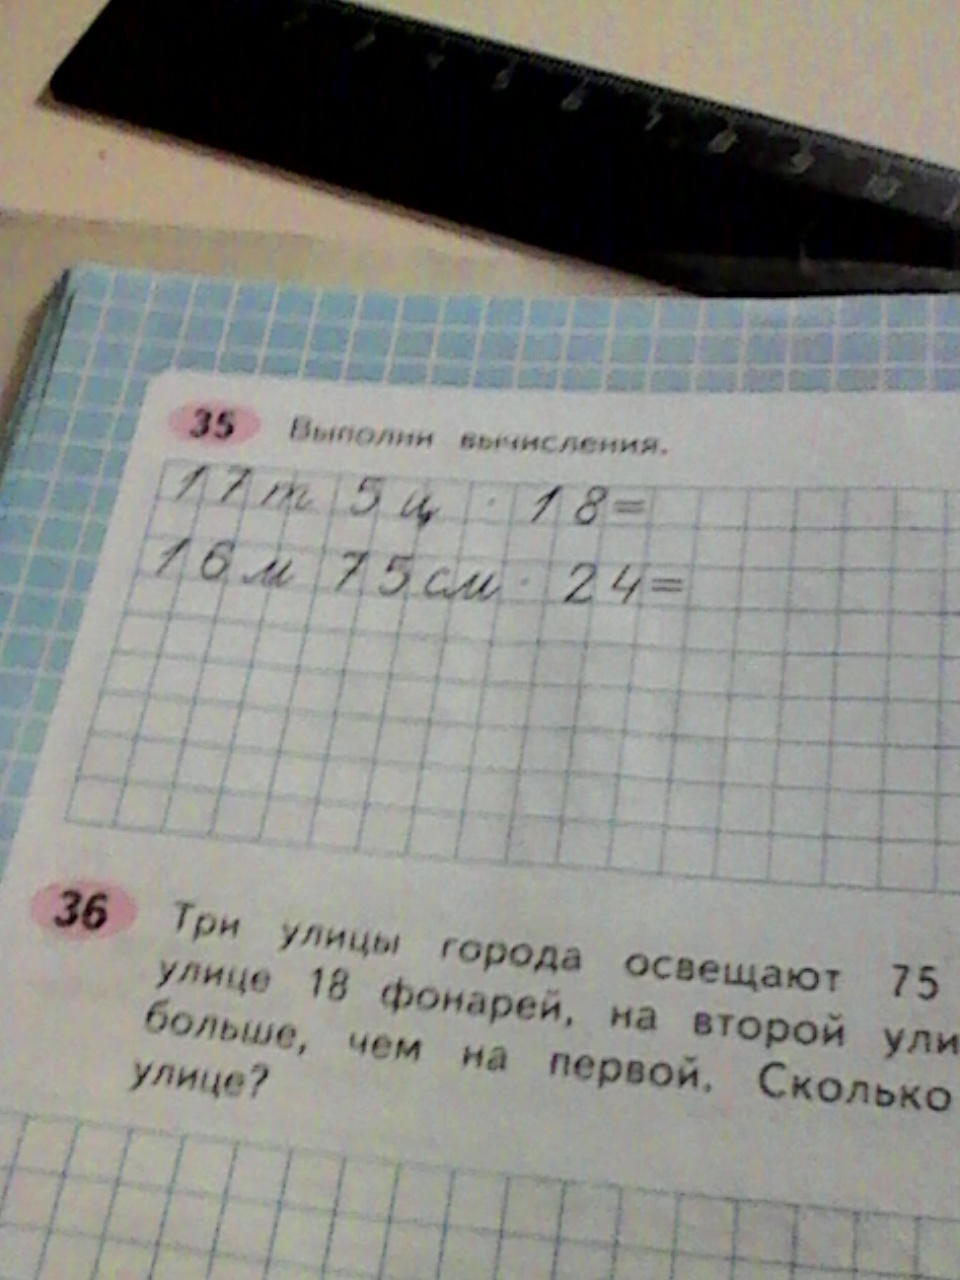 35 Выполни вычисления.
17 т 5 ц · 18=
16 м 75 см · 24=
36 Три улицы города освещают 75
улице 18 фонарей, на второй ули
больше, чем на первой. Сколько
улице?